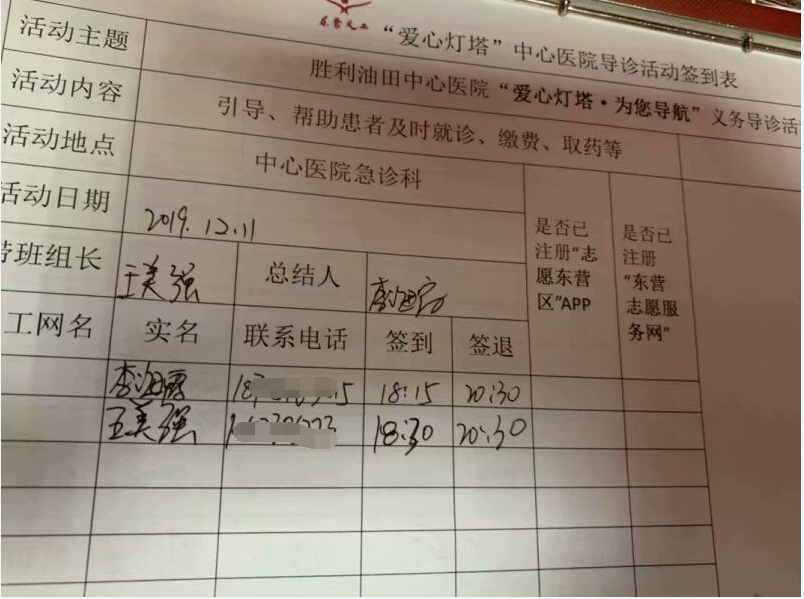 东营义工
“爱心灯塔”中心医院导诊活动签到表
活动主题
胜利油田中心医院“爱心灯塔·为您导航”义务导诊活
活动内容
引导、帮助患者及时就诊、缴费、取药等
活动地点
中心医院急诊科
活动日期
2019.12.11
是否已注册“志愿东营区”APP
是否已注册“东营志愿服务网”
带班组长
王美强
总结人
工网名
实名
联系电话
签到
签退
18:15
20:30
王美强
18:30
20:30